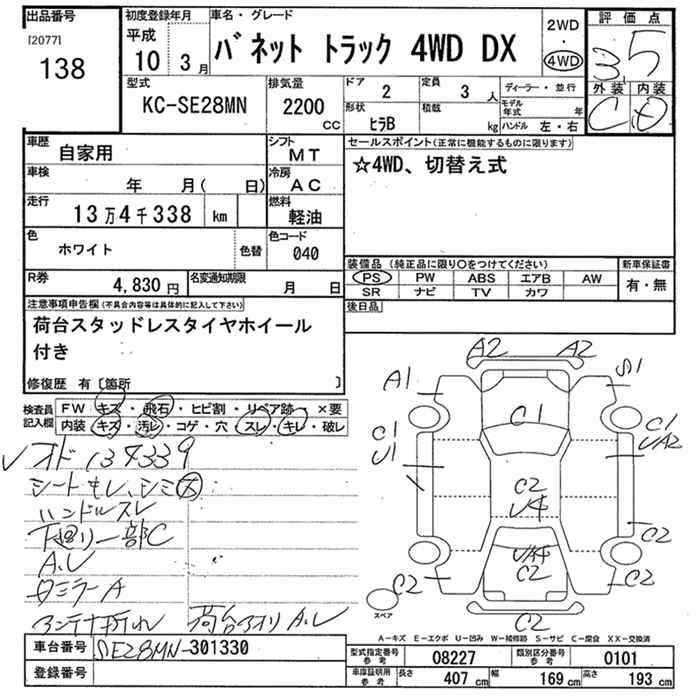 出品番号
[2077]
138
初度登録年月
平成
10年3月
車名・グレード
バネット トラック 4WD DX
2WD
・
4WD
評価点
3.5
外装 内装
C D
型式
KC-SE28MN
排気量
2200 CC
ドア
2
定員
3 人
形状
ヒラB
積載
kg
ディーラー・並行
モデル年式 年
ハンドル 左・右
車歴
自家用
シフト
MT
車検
年 月( 日)
冷房
AC
走行
13万4千338 km
燃料
軽油
色
ホワイト
色替
色コード
040
R券
4,830 円
名変通知期限
月 日
セールスポイント(正常に機能するものに限ります)
☆4WD、切替え式
装備品(純正品に限り〇をつけてください)
PS PW ABS エアB AW
SR ナビ TV カワ
新車保証書
有・無
後日品
注意事項申告欄(不具合内容等は具体的に記入して下さい)
荷台スタッドレスタイヤホイール
付き
修復歴 有〔箇所 〕
検査員
記入欄
FW キズ・飛石・ヒビ割・リペア跡・×要
内装 キズ・汚レ・コゲ・穴・スレ・キレ・破レ
オド134339
シートもレ、シミ大
ハンドルスレ
下廻り一部C
A.U
Aミラー A
アンテナ折れ 荷台アオリ A.U
A2 A2
A1 S1
C1
C1 C1
U1 UA2
C2
U4
UA4
C2
C2
C2 C2
C2
スペア
A-キズ E-エクボ U-凹み W-補修跡 S-サビ C-腐食 XX-交換済
車台番号
SE28MN-301330
登録番号
型式指定番号
参考
08227
類別区分番号
参考
0101
車庫証明用
参考
長さ 407 cm 幅 169 cm 高さ 193 cm